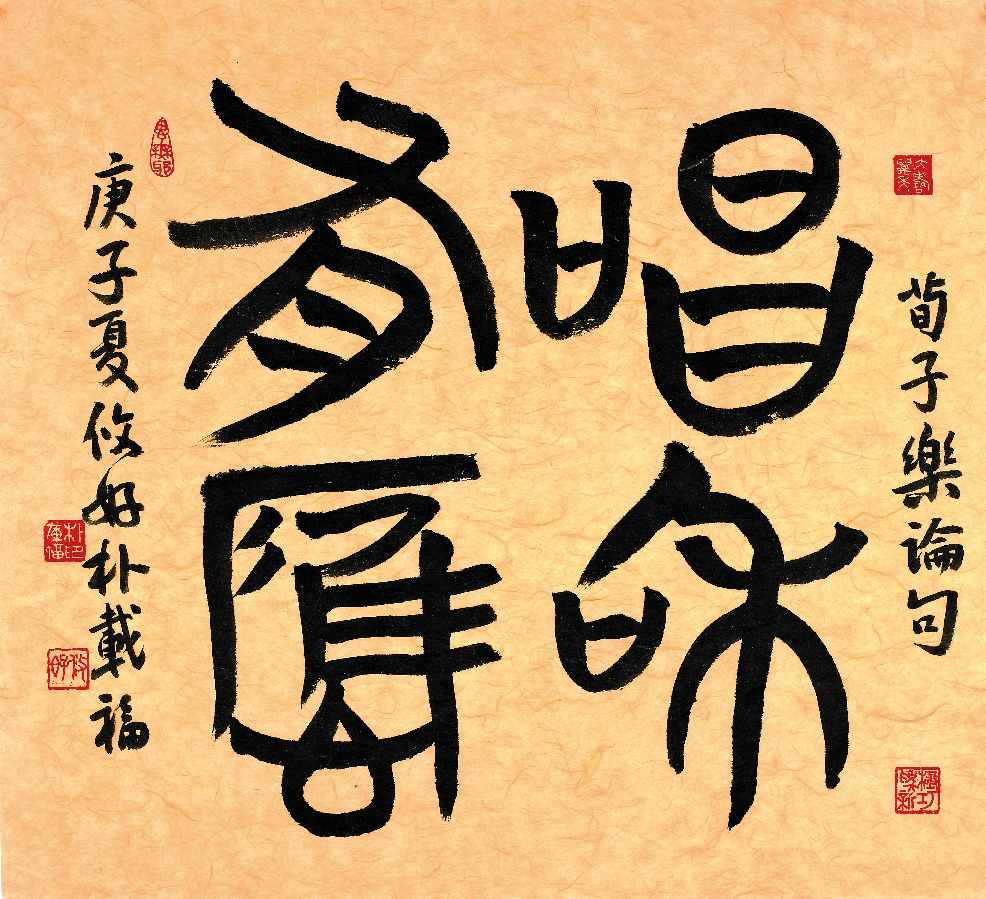 荀子樂論句
唱和
有應
庚子夏攸好朴載福